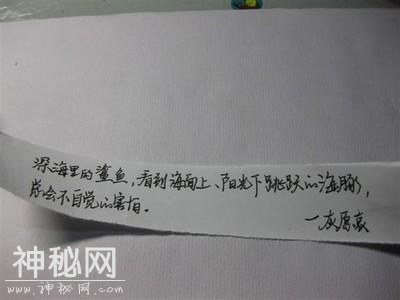 深海里的鲨鱼，看到海面上、阳光下跳跃的海豚，
总会不自觉的害怕。
一灰原哀
神秘网
www.shenmw.com